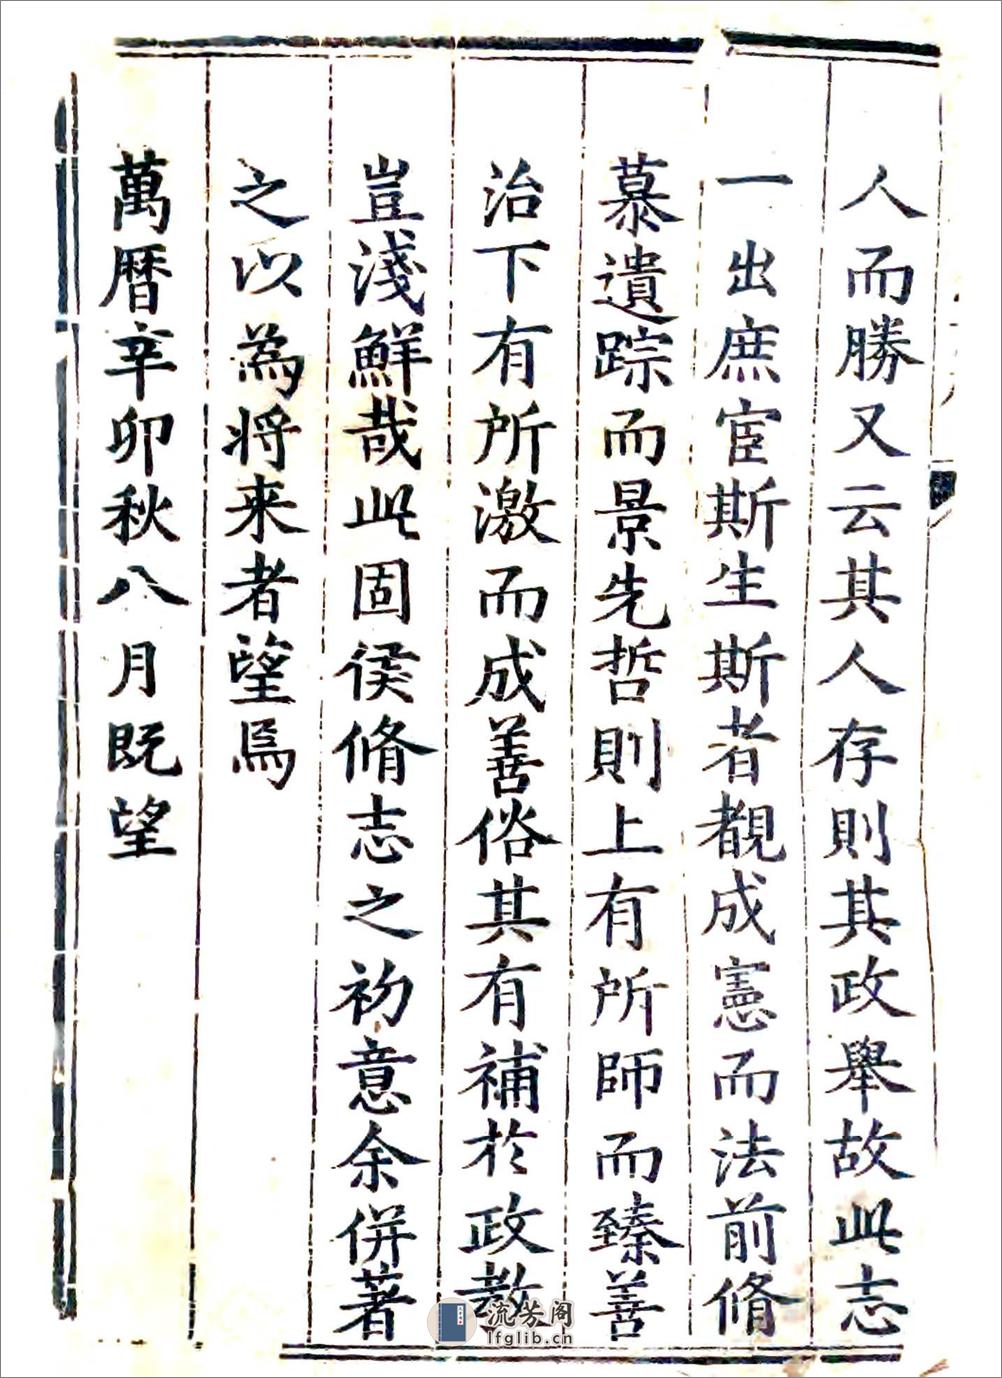 人而勝又云其人存則其政舉故此志
一出庶宦斯生斯者覩成憲而法前脩
慕遺踪而景先哲則上有所師而臻善
治下有所激而成善俗其有補於政教
豈淺鮮哉此固侯脩志之初意余併著
之以為将来者望焉
萬曆辛卯秋八月既望
流芳阁
lfglib.cn